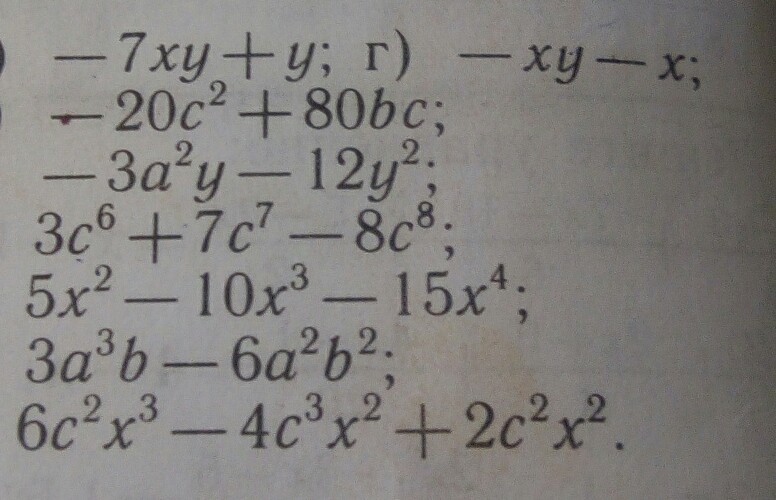 ) −7xy+y; г) −xy−x;
−20c²+80bc;
−3a²y−12y²;
3c⁶+7c⁷−8c⁸;
5x²−10x³−15x⁴;
3a³b−6a²b²;
6c²x³−4c³x²+2c²x².